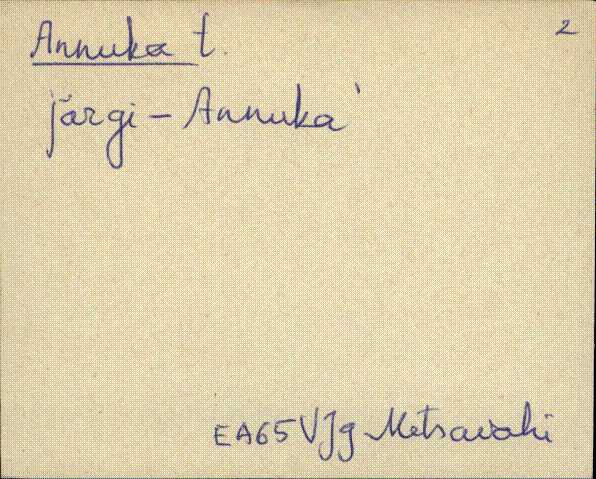 Annuka t. 2
järgi - Annuka'
EA65 VJg Metsavahi